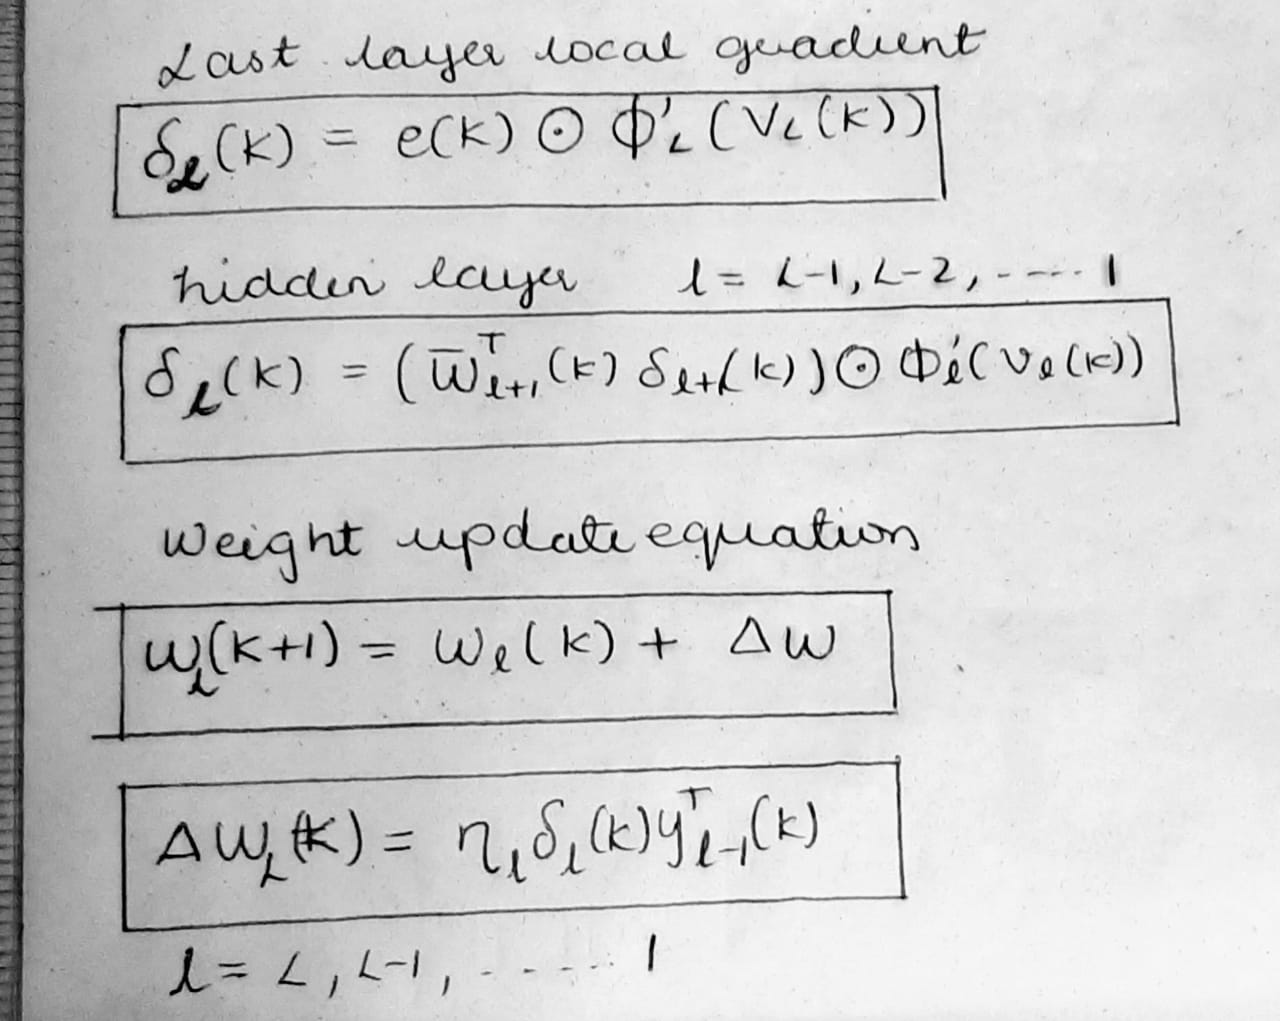 Last layer local gradient
δ_L(k) = e(k) ⊙ Φ'_L(V_L(k))
hidden layer l = L-1, L-2, ---- 1
δ_l(k) = (W̄ᵀ_{l+1}(k) δ_{l+1}(k)) ⊙ Φ'_l(v_l(k))
Weight update equation
w_l(k+1) = w_l(k) + Δw
ΔW_L(k) = η_l δ_l(k) yᵀ_{l-1}(k)
l = L, L-1, ----- 1